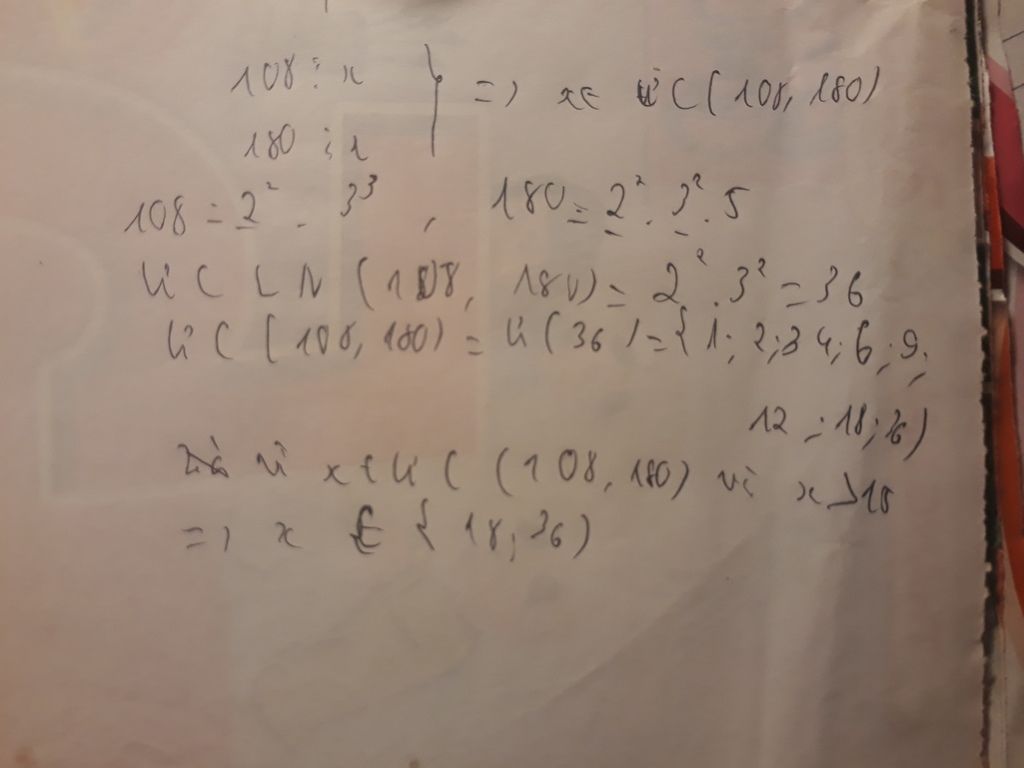 108 ⋮ x } => x ∈ ƯC(108, 180)
180 ⋮ x
108 = 2² . 3³ , 180 = 2² . 3² . 5
ƯCLN (108, 180) = 2² . 3² = 36
ƯC (108, 180) = Ư(36) = {1; 2; 3 4; 6; 9;
12; 18; 36}
vì x ∈ ƯC (108, 180) vì x > 18
=> x ∈ {18; 36}